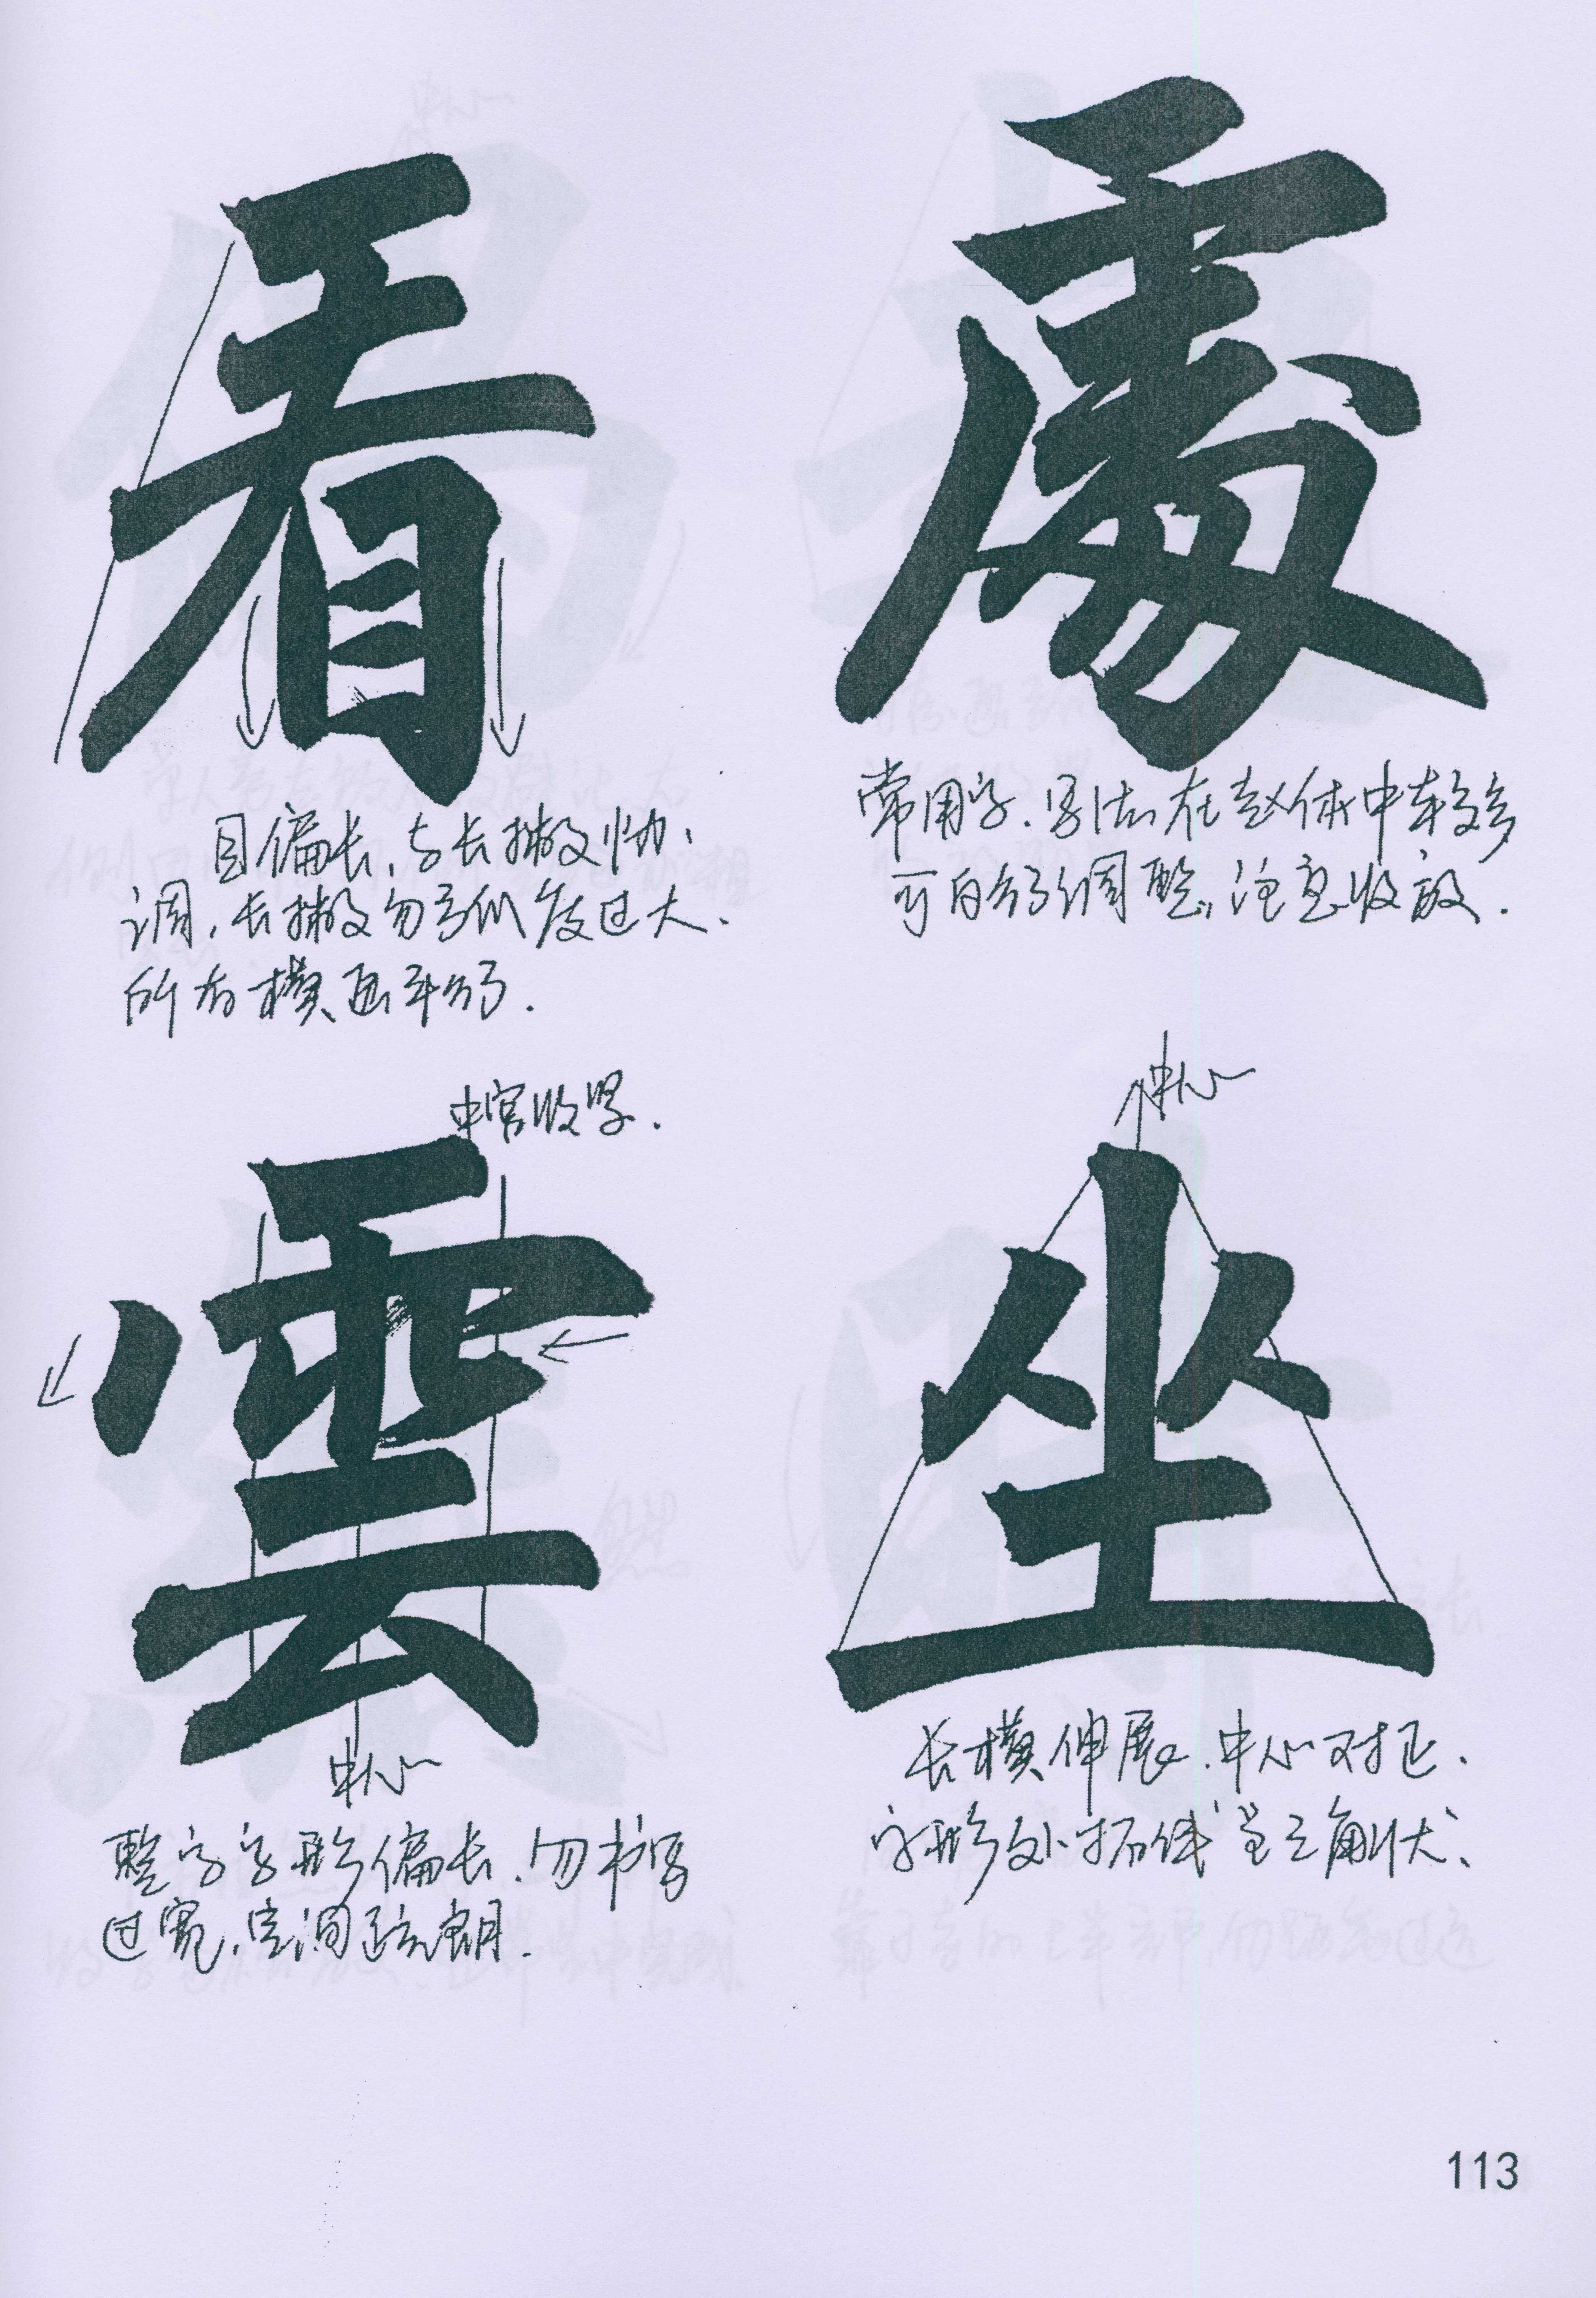 處
常用字.写法在赵体中较多
可自行调整,注意收放.
看
目偏长,与长撇协
调,长撇勿弧度过大.
所有横画平行.
中心
坐
长横伸展.中心对正.
字形外拓线呈三角状.
中宫收紧.
雲
中心
整字字形偏长.勿书写
过宽,空间疏朗.
113